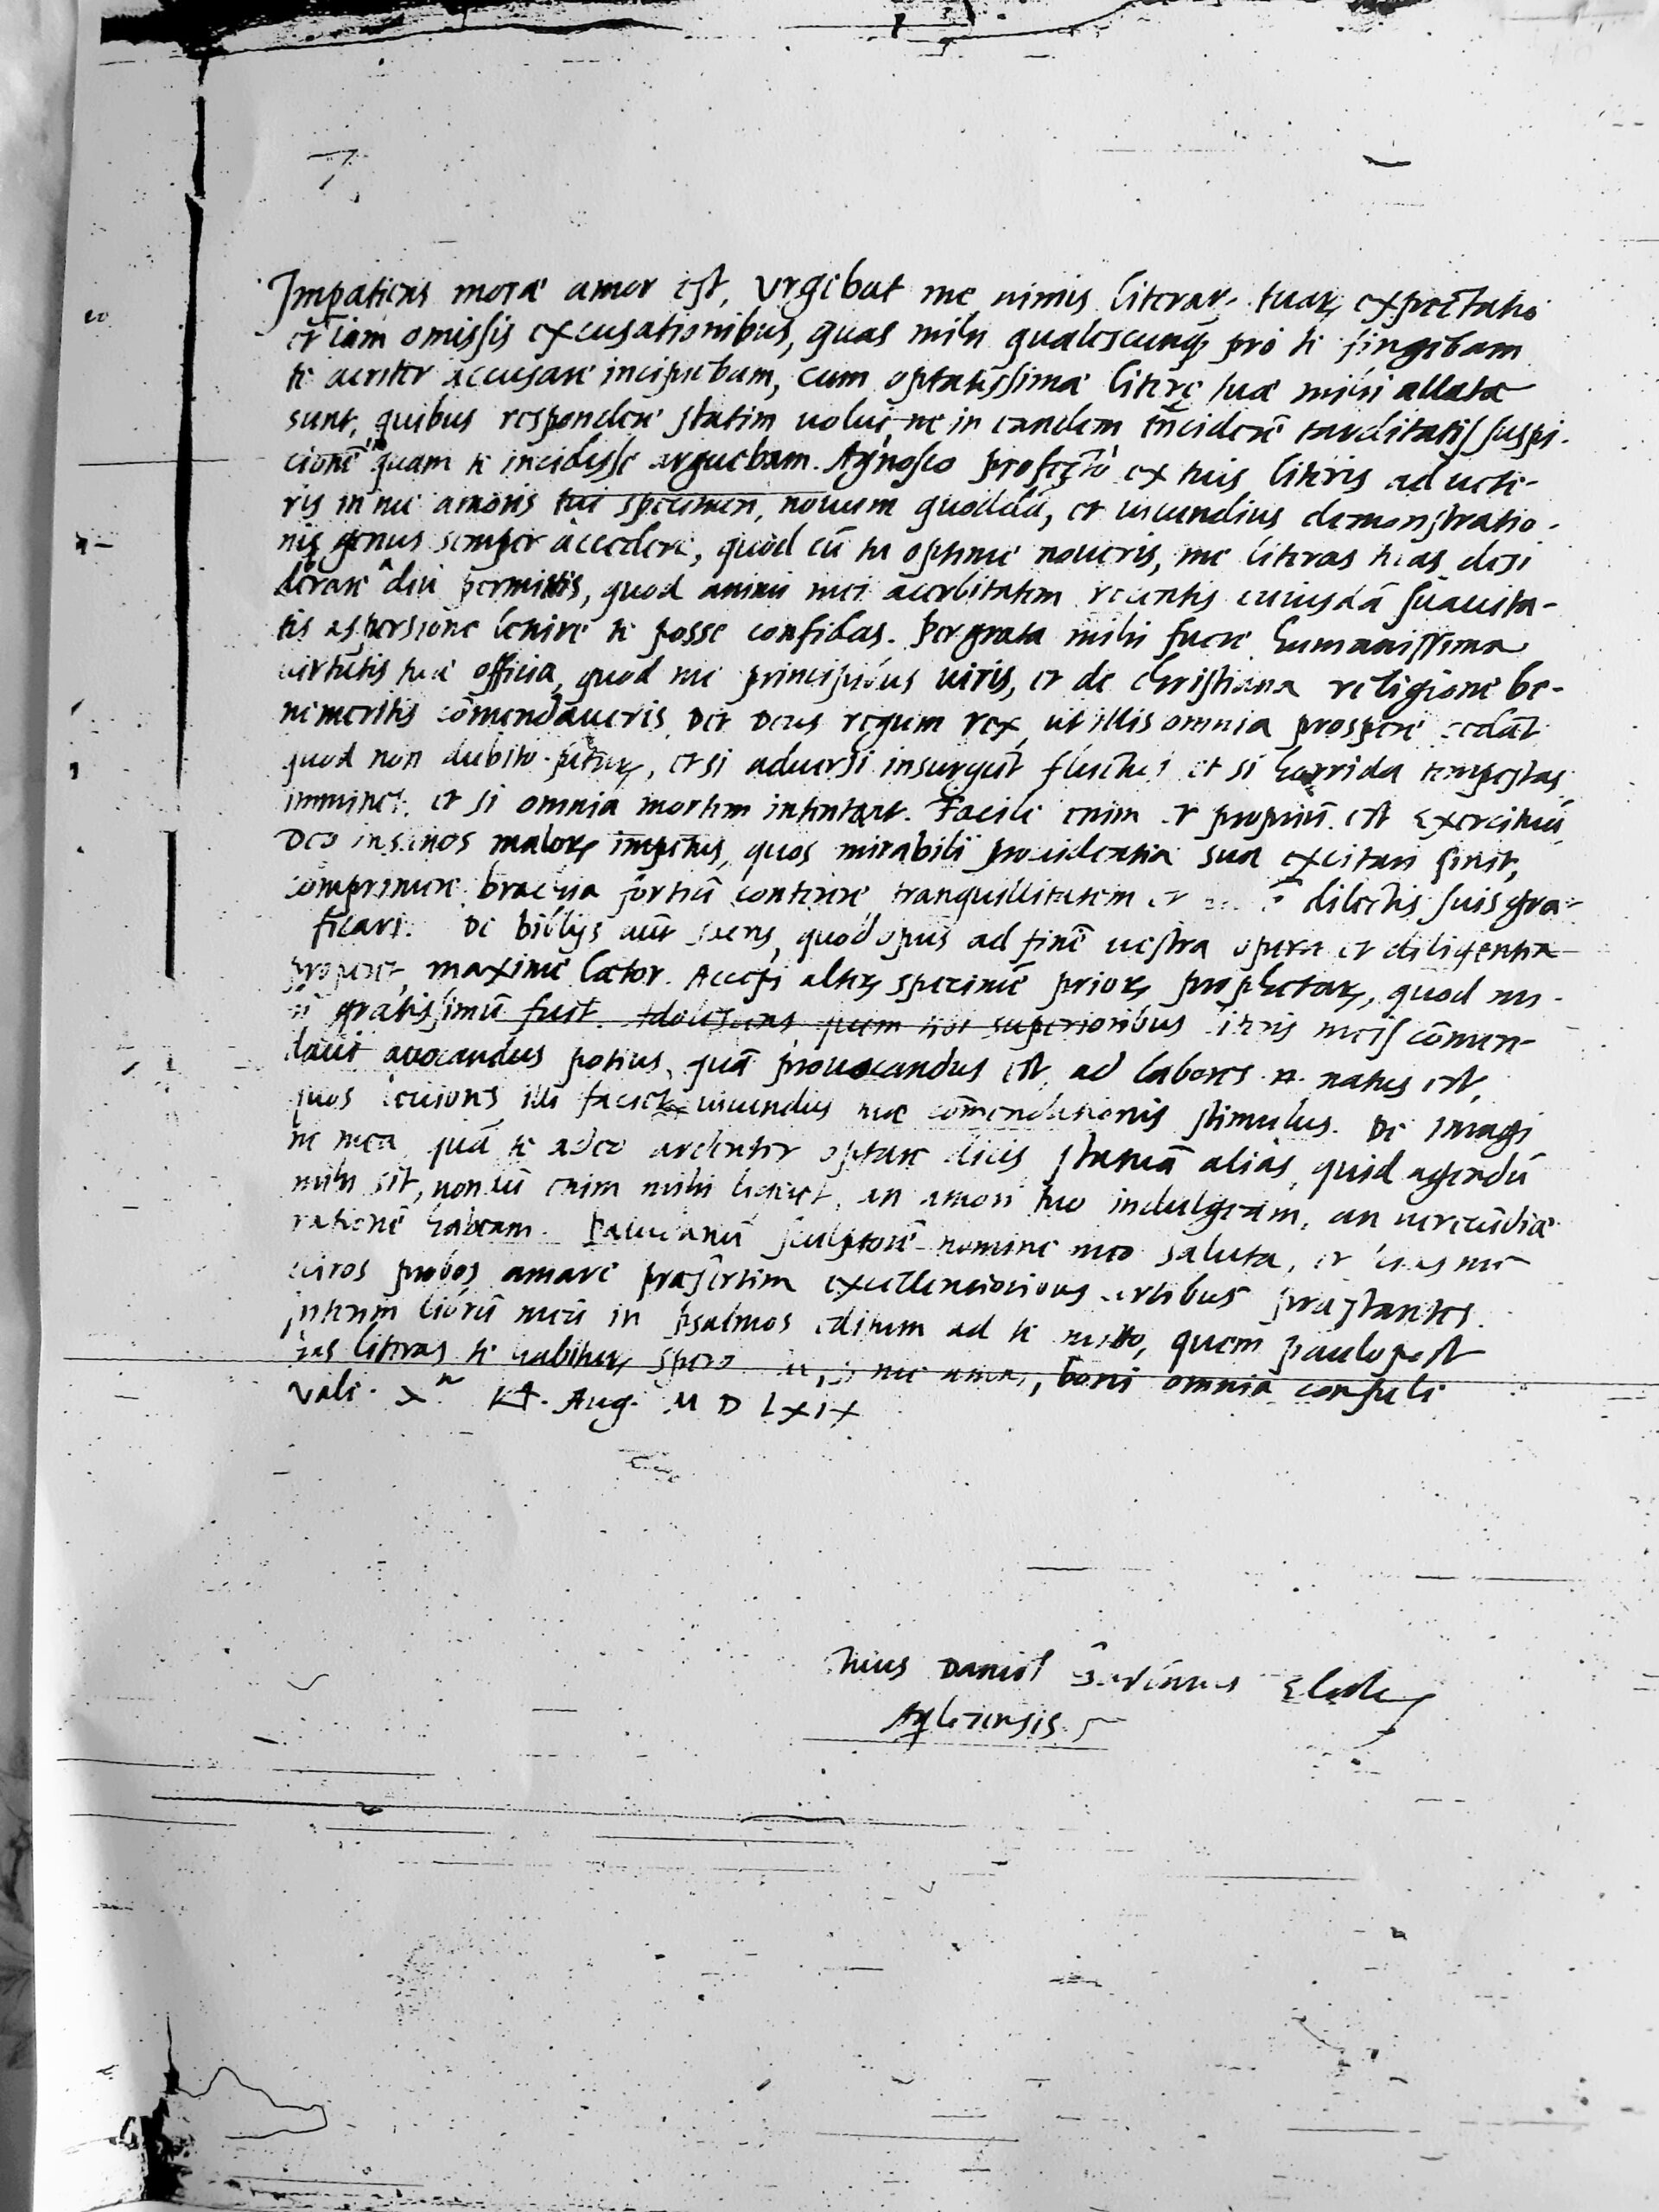 Impatiens moræ amor est, Vrgebat me nimis literar. tuar, expectatio
et iam omissis excusationibus, quas mihi qualescunq; pro te fingebam
te acriter accusare incipiebam, cum optatissimæ literę tuæ mihi allatæ
sunt, quibus respondere statim uolui, ne in eandem inciderē tarditatis suspi-
cionē in quam te incidisse arguebam. Agnosco profectò ex tuis literis ad uete-
ris in me amoris tui specimen, nouum quoddā, et iucundius demonstratio-
nis genus semper accedere, quod cū tu optime noueris, me literas tuas desi
derare diu permittis, quod animi mei acerbitatem recentis cuiusdā suauita-
tis aspersione lenire te posse confidas. Pergrata mihi fuere humanissima
uirtutis tuæ officia, quod me principibus uiris, et de christiana religione be-
nemeritis cōmendaueris. Det Deus regum rex, ut illis omnia prospere cedāt
quod non dubito, et si aduersi insurgūt fluctus et si horrida tempestas
imminet, et si omnia mortem intentant. Facile enim et propriū est Exercituū
Deo insanos malor, impetus, quos mirabili prouidentia sua excitari sinit,
comprimere brachia fortiū conterere tranquillitatem et dilectis suis gra-
ficari. De biblijs aūt sacris, quod opus ad finē uestra opera et diligentia
properet, maxime lætor. Accepi alter, specimē prior, prophetar, quod mi-
hi gratissimū fuit. Adolescens quem tibi superioribus lris meis cōmen-
daui auocandus potius, quā prouocandus est, ad labores n. natus est,
quos leuiores illi faciet iucundus tuæ cōmendationis stimulus. De imagi
ne mea quā te adeo ardenter optare dicis statuā alias, quid agendū
mihi sit, non dū enim mihi liquet, an amori tuo indulgeam, an uerecūdiæ
rationē habeam. Paludanū sculptorē nomine meo saluta, et me
uiros probos amare præsertim excellentioribus artibus præstantes.
interim librū meū in psalmos editum ad te mitto, quem paulo post
has literas te habitur, spero si me amas, boni omnia consule
Vale. X Kl. Aug. M D LXIX
Tuus Daniel Barbarus Elect,
Aqleiensis